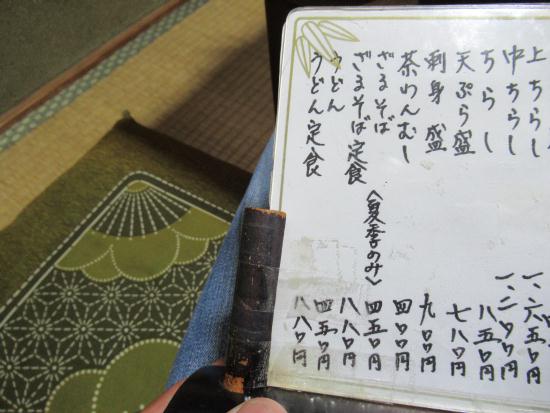 上ちらし 一、六五〇円
中ちらし 一、二〇〇円
ちらし 八五〇円
天ぷら盛 七八〇円
刺身盛 九〇〇円
茶わんむし 四〇〇円
ざるそば 〈夏季のみ〉 四五〇円
ざるそば定食 八八〇円
うどん 四五〇円
うどん定食 八八〇円